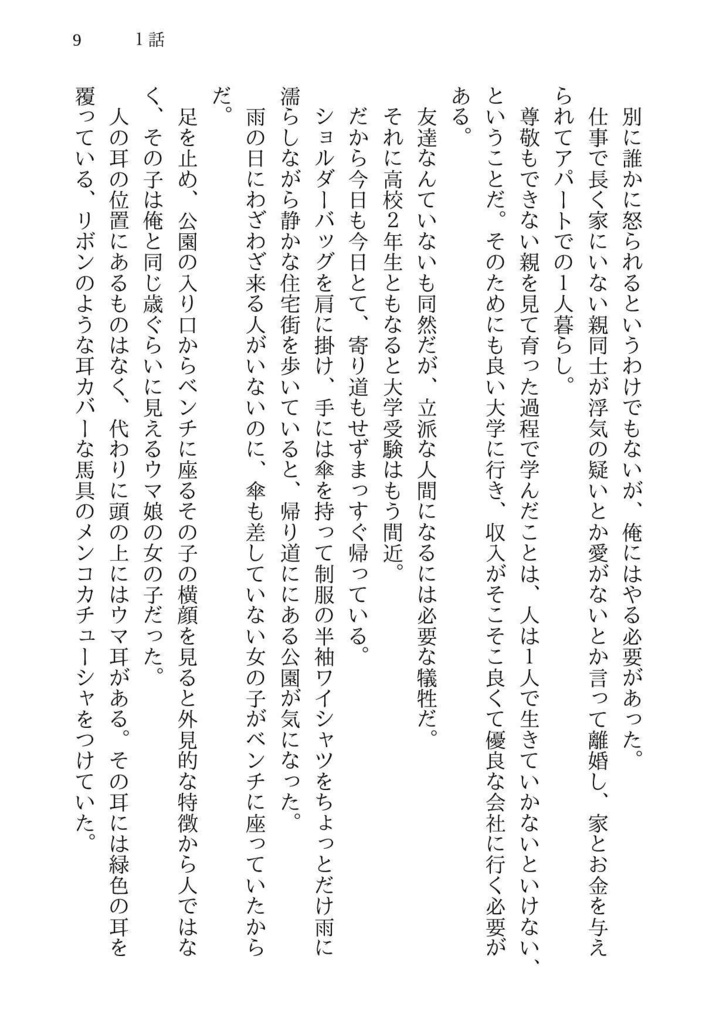 9 1話
別に誰かに怒られるというわけでもないが、俺にはやる必要があった。
仕事で長く家にいない親同士が浮気の疑いとか愛がないとか言って離婚し、家とお金を与え
られてアパートでの1人暮らし。
尊敬もできない親を見て育った過程で学んだことは、人は1人で生きていかないといけない、
ということだ。そのためにも良い大学に行き、収入がそこそこ良くて優良な会社に行く必要が
ある。
友達なんていないも同然だが、立派な人間になるには必要な犠牲だ。
それに高校2年生ともなると大学受験はもう間近。
だから今日も今日とて、寄り道もせずまっすぐ帰っている。
ショルダーバッグを肩に掛け、手には傘を持って制服の半袖ワイシャツをちょっとだけ雨に
濡らしながら静かな住宅街を歩いていると、帰り道ににある公園が気になった。
雨の日にわざわざ来る人がいないのに、傘も差していない女の子がベンチに座っていたから
だ。
足を止め、公園の入り口からベンチに座るその子の横顔を見ると外見的な特徴から人ではな
く、その子は俺と同じ歳ぐらいに見えるウマ娘の女の子だった。
人の耳の位置にあるものはなく、代わりに頭の上にはウマ耳がある。その耳には緑色の耳を
覆っている、リボンのような耳カバーな馬具のメンコカチューシャをつけていた。